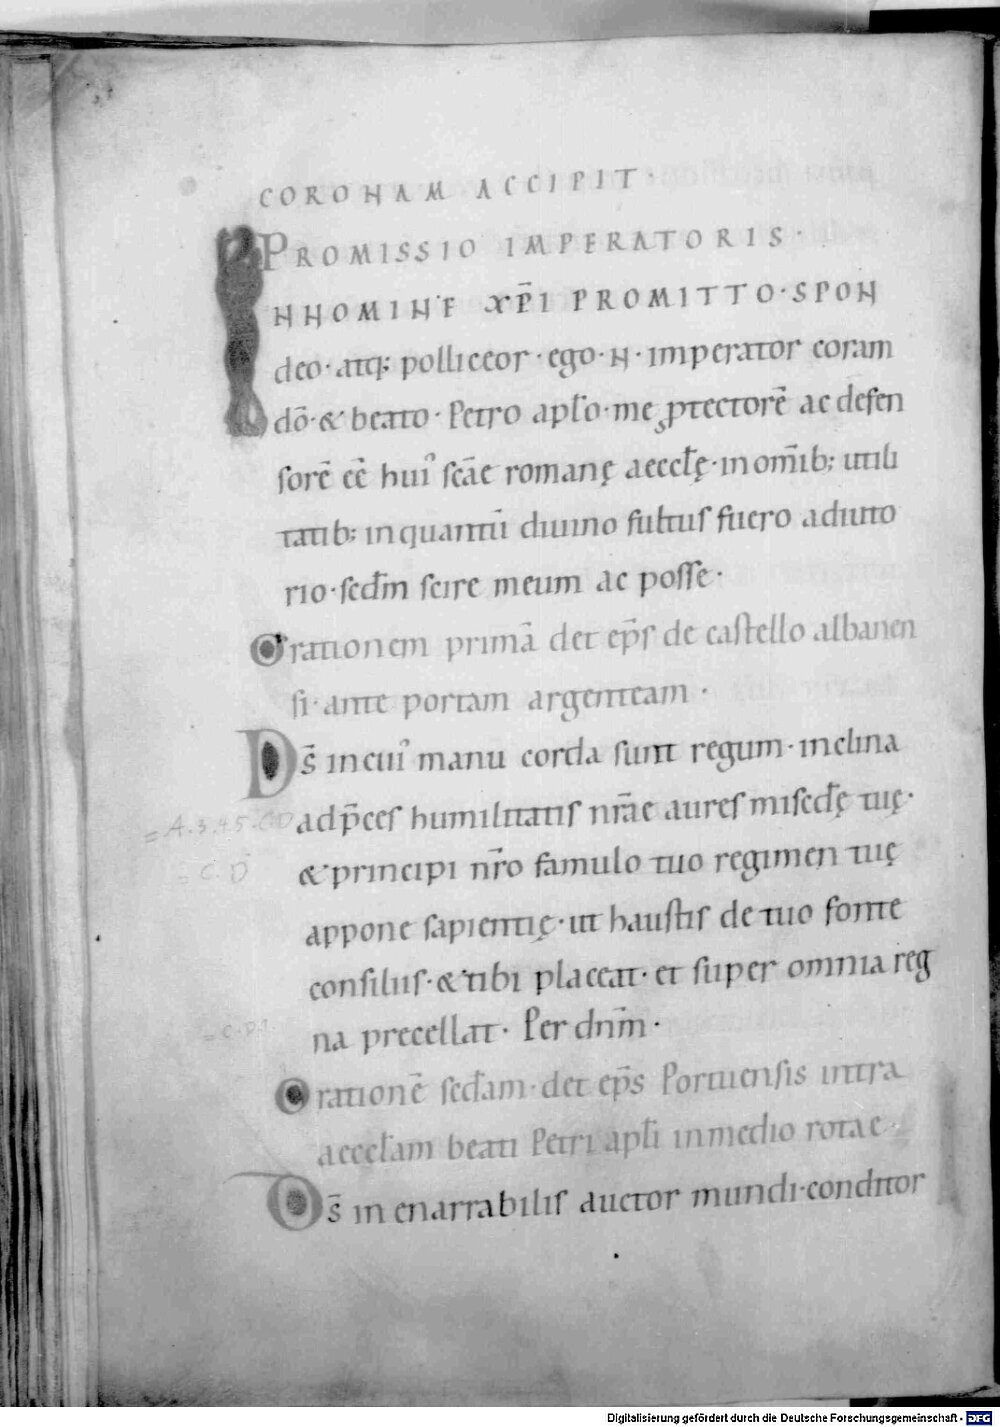 CORONAM ACCIPIT·
PROMISSIO IMPERATORIS·
INNOMINE XP̄I PROMITTO·SPON
deo·atq; polliceor·ego·N·imperator coram
dō·& beato·Petro apƚo·me ꝓtectorē ac defen
sorē eē hui᾽ scāe romanę aeccƚę·in om̄ib; utili
tatib; inquantū diuino fultus fuero adiuto
rio·scđm scire meum ac posse·
Orationem primā det ep̄s de castello albanen
si·ante portam argenteam·
D̄s incui᾽ manu corda sunt regum·inclina
adp̄ces humilitatis nr̄ae aures miscđę tuę·
& principi nr̄o famulo tuo regimen tuę
appone sapientię·ut haustis de tuo fonte
consiliis·& tibi placeat·et super omnia reg
na precellat· Per dnm̄·
Orationē scđam·det ep̄s Portuensis intra
aeccƚam beati Petri apƚi inmedio rotae·
D̄s in enarrabilis auctor mundi·conditor
= A.3.4.5.C D
= C. D
Digitalisierung gefördert durch die Deutsche Forschungsgemeinschaft - DFG